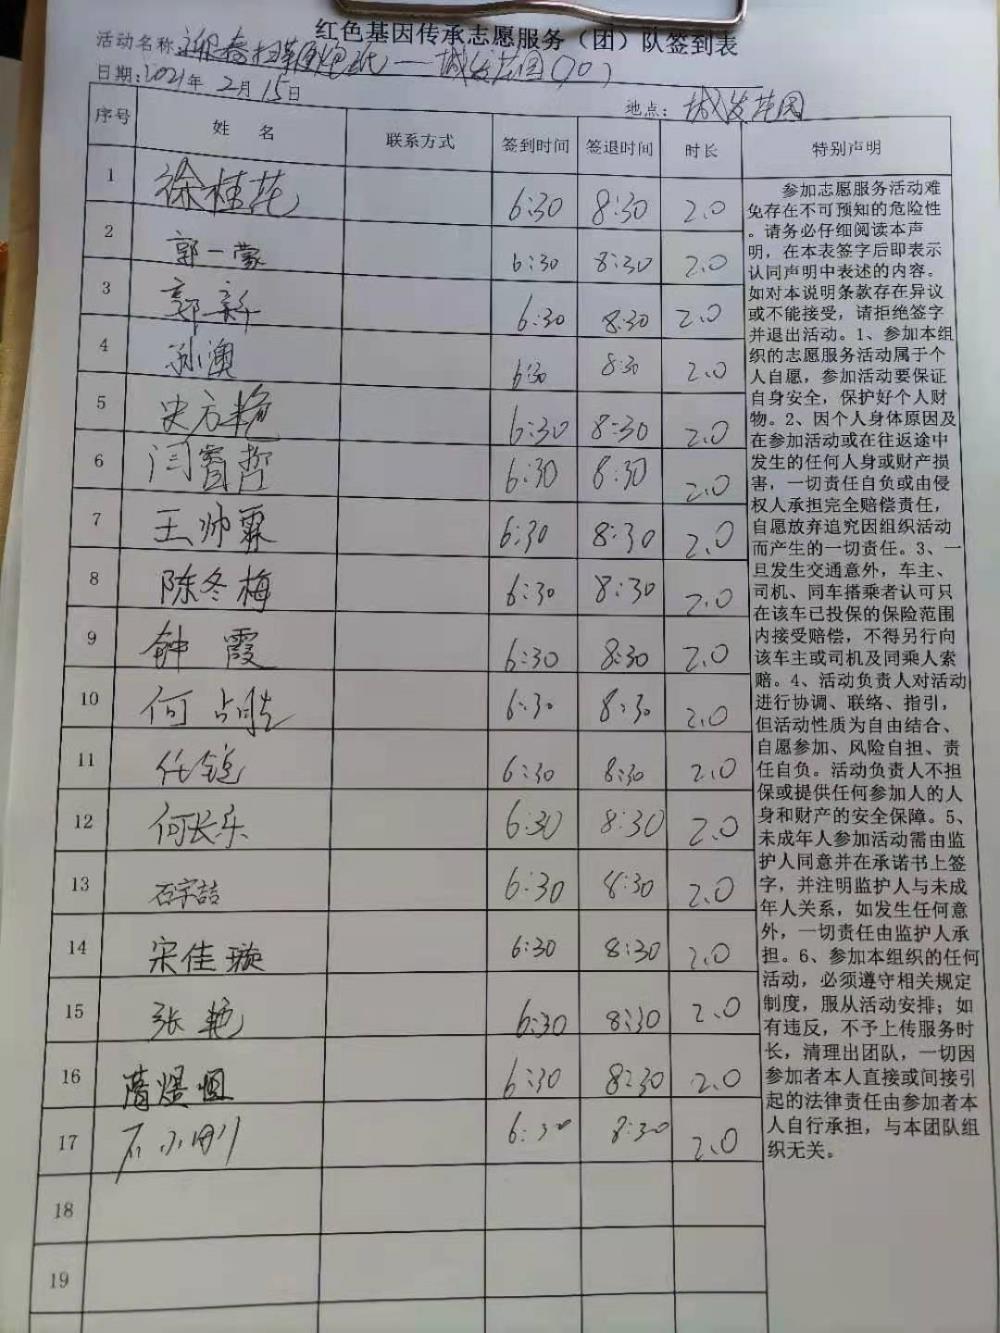 红色基因传承志愿服务（团）队签到表
活动名称
日期:2021年2月15日
地点: 城发花园
序号 姓名 联系方式 签到时间 签退时间 时长 特别声明
1 徐桂花 6:30 8:30 2.0
2 郭一蒙 6:30 8:30 2.0
3 郭新 6:30 8:30 2.0
4 孙澳 6:30 8:30 2.0
5 史方艳 6:30 8:30 2.0
6 闫睿哲 6:30 8:30 2.0
7 王帅霖 6:30 8:30 2.0
8 陈冬梅 6:30 8:30 2.0
9 钟霞 6:30 8:30 2.0
10 何占 6:30 8:30 2.0
11 任 6:30 8:30 2.0
12 何长乐 6:30 8:30 2.0
13 石宇喆 6:30 8:30 2.0
14 宋佳璇 6:30 8:30 2.0
15 张艳 6:30 8:30 2.0
16 6:30 8:30 2.0
17 石小 6:30 8:30 2.0
18
19
参加志愿服务活动难
免存在不可预知的危险性
。请务必仔细阅读本声
明，在本表签字后即表示
认同声明中表述的内容。
如对本说明条款存在异议
或不能接受，请拒绝签字
并退出活动。1、参加本组
织的志愿服务活动属于个
人自愿，参加活动要保证
自身安全，保护好个人财
物。2、因个人身体原因及
在参加活动或在往返途中
发生的任何人身或财产损
害，一切责任自负或由侵
权人承担完全赔偿责任，
自愿放弃追究因组织活动
而产生的一切责任。3、一
旦发生交通意外，车主、
司机、同车搭乘者认可只
在该车已投保的保险范围
内接受赔偿，不得另行向
该车主或司机及同乘人索
赔。4、活动负责人对活动
进行协调、联络、指引，
但活动性质为自由结合、
自愿参加、风险自担、责
任自负。活动负责人不担
保或提供任何参加人的人
身和财产的安全保障。5、
未成年人参加活动需由监
护人同意并在承诺书上签
字，并注明监护人与未成
年人关系，如发生任何意
外，一切责任由监护人承
担。6、参加本组织的任何
活动，必须遵守相关规定
制度，服从活动安排；如
有违反，不予上传服务时
长，清理出团队，一切因
参加者本人直接或间接引
起的法律责任由参加者本
人自行承担，与本团队组
织无关。